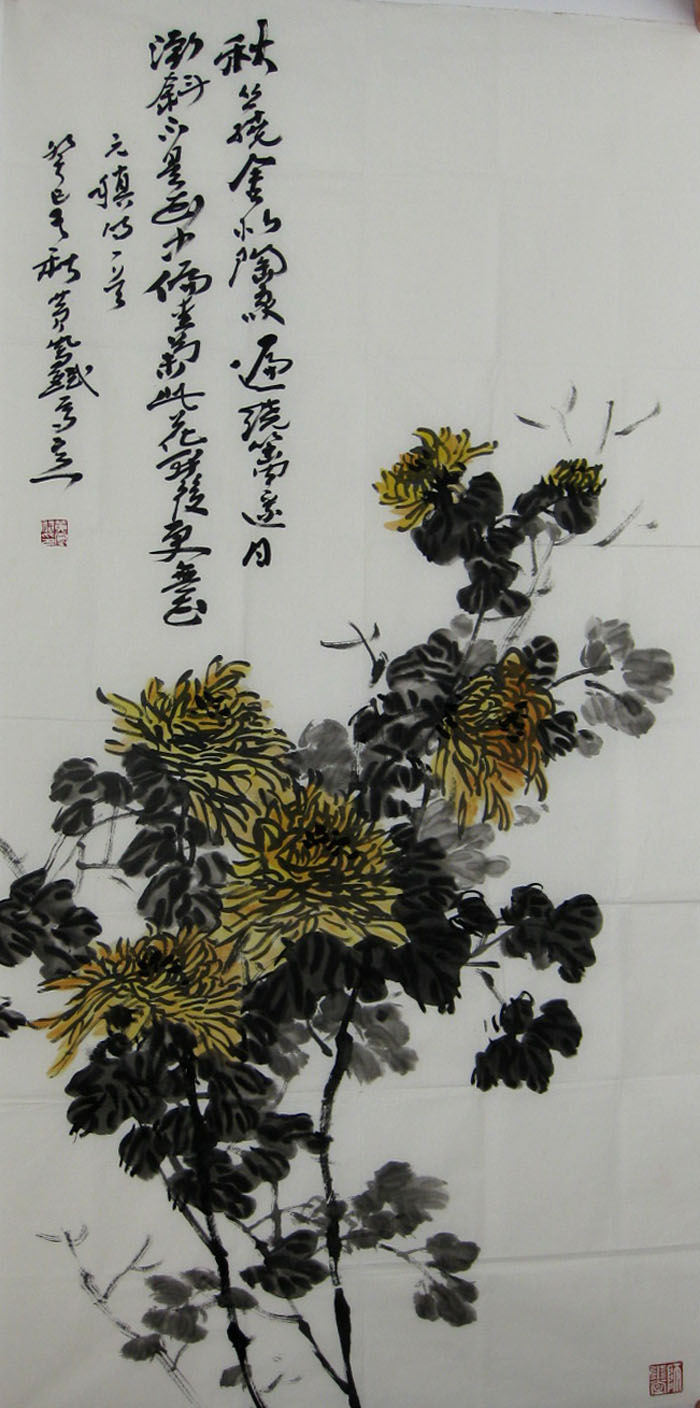 秋丛绕舍似陶家遍绕篱边日
渐斜不是花中偏爱菊此花开后更无花
元稹诗一首
癸巳 秋黄 写意